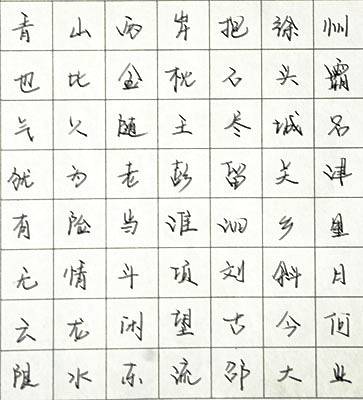 青山两岸抱徐州
也比金枕石头霸
气久随王尽城名
犹为老彭留关津
有险当淮泗乡里
无情斗项刘斜日
云龙闲望古今何
阻水东流邵大业